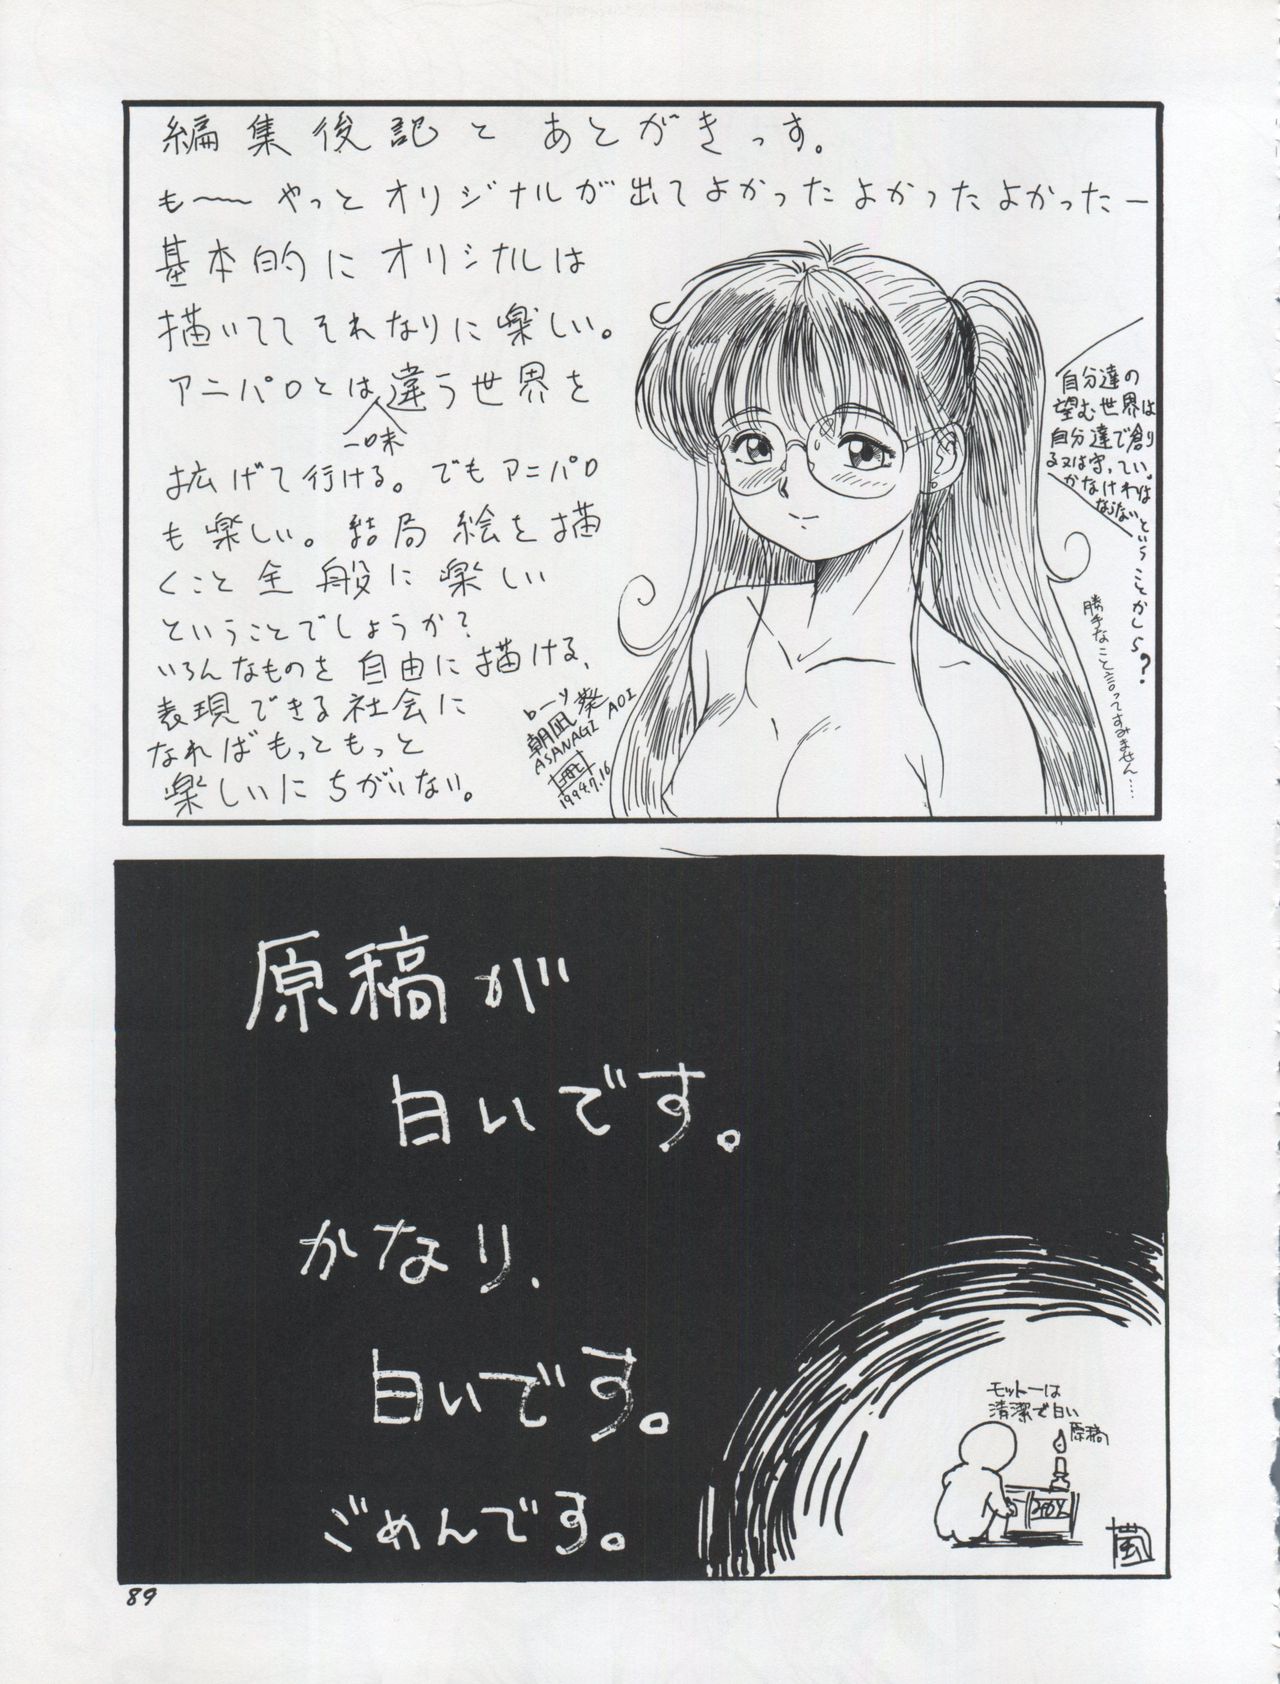 編集後記と あとがきっす。
も～～やっとオリジナルが出てよかったよかったよかったー
基本的にオリジナルは
描いててそれなりに楽しい。
アニパロとは一味違う世界を
拡げて行ける。でもアニパロ
も楽しい。結局 絵を描
くこと全般に楽しい
ということでしょうか?
いろんなものを自由に描ける、
表現できる社会に
なればもっともっと
楽しいにちがいない。
自分達の
望む世界は
自分達で創り
る又は守ってい
かなければ
ならない
ということかしら?
勝手なこと言ってすみません……
朝凪 葵 AOI
ASANAGI
1994.7.16
原稿が
白いです。
かなり、
白いです。
ごめんです。
モットーは
清潔で白い
原稿
嵐
89